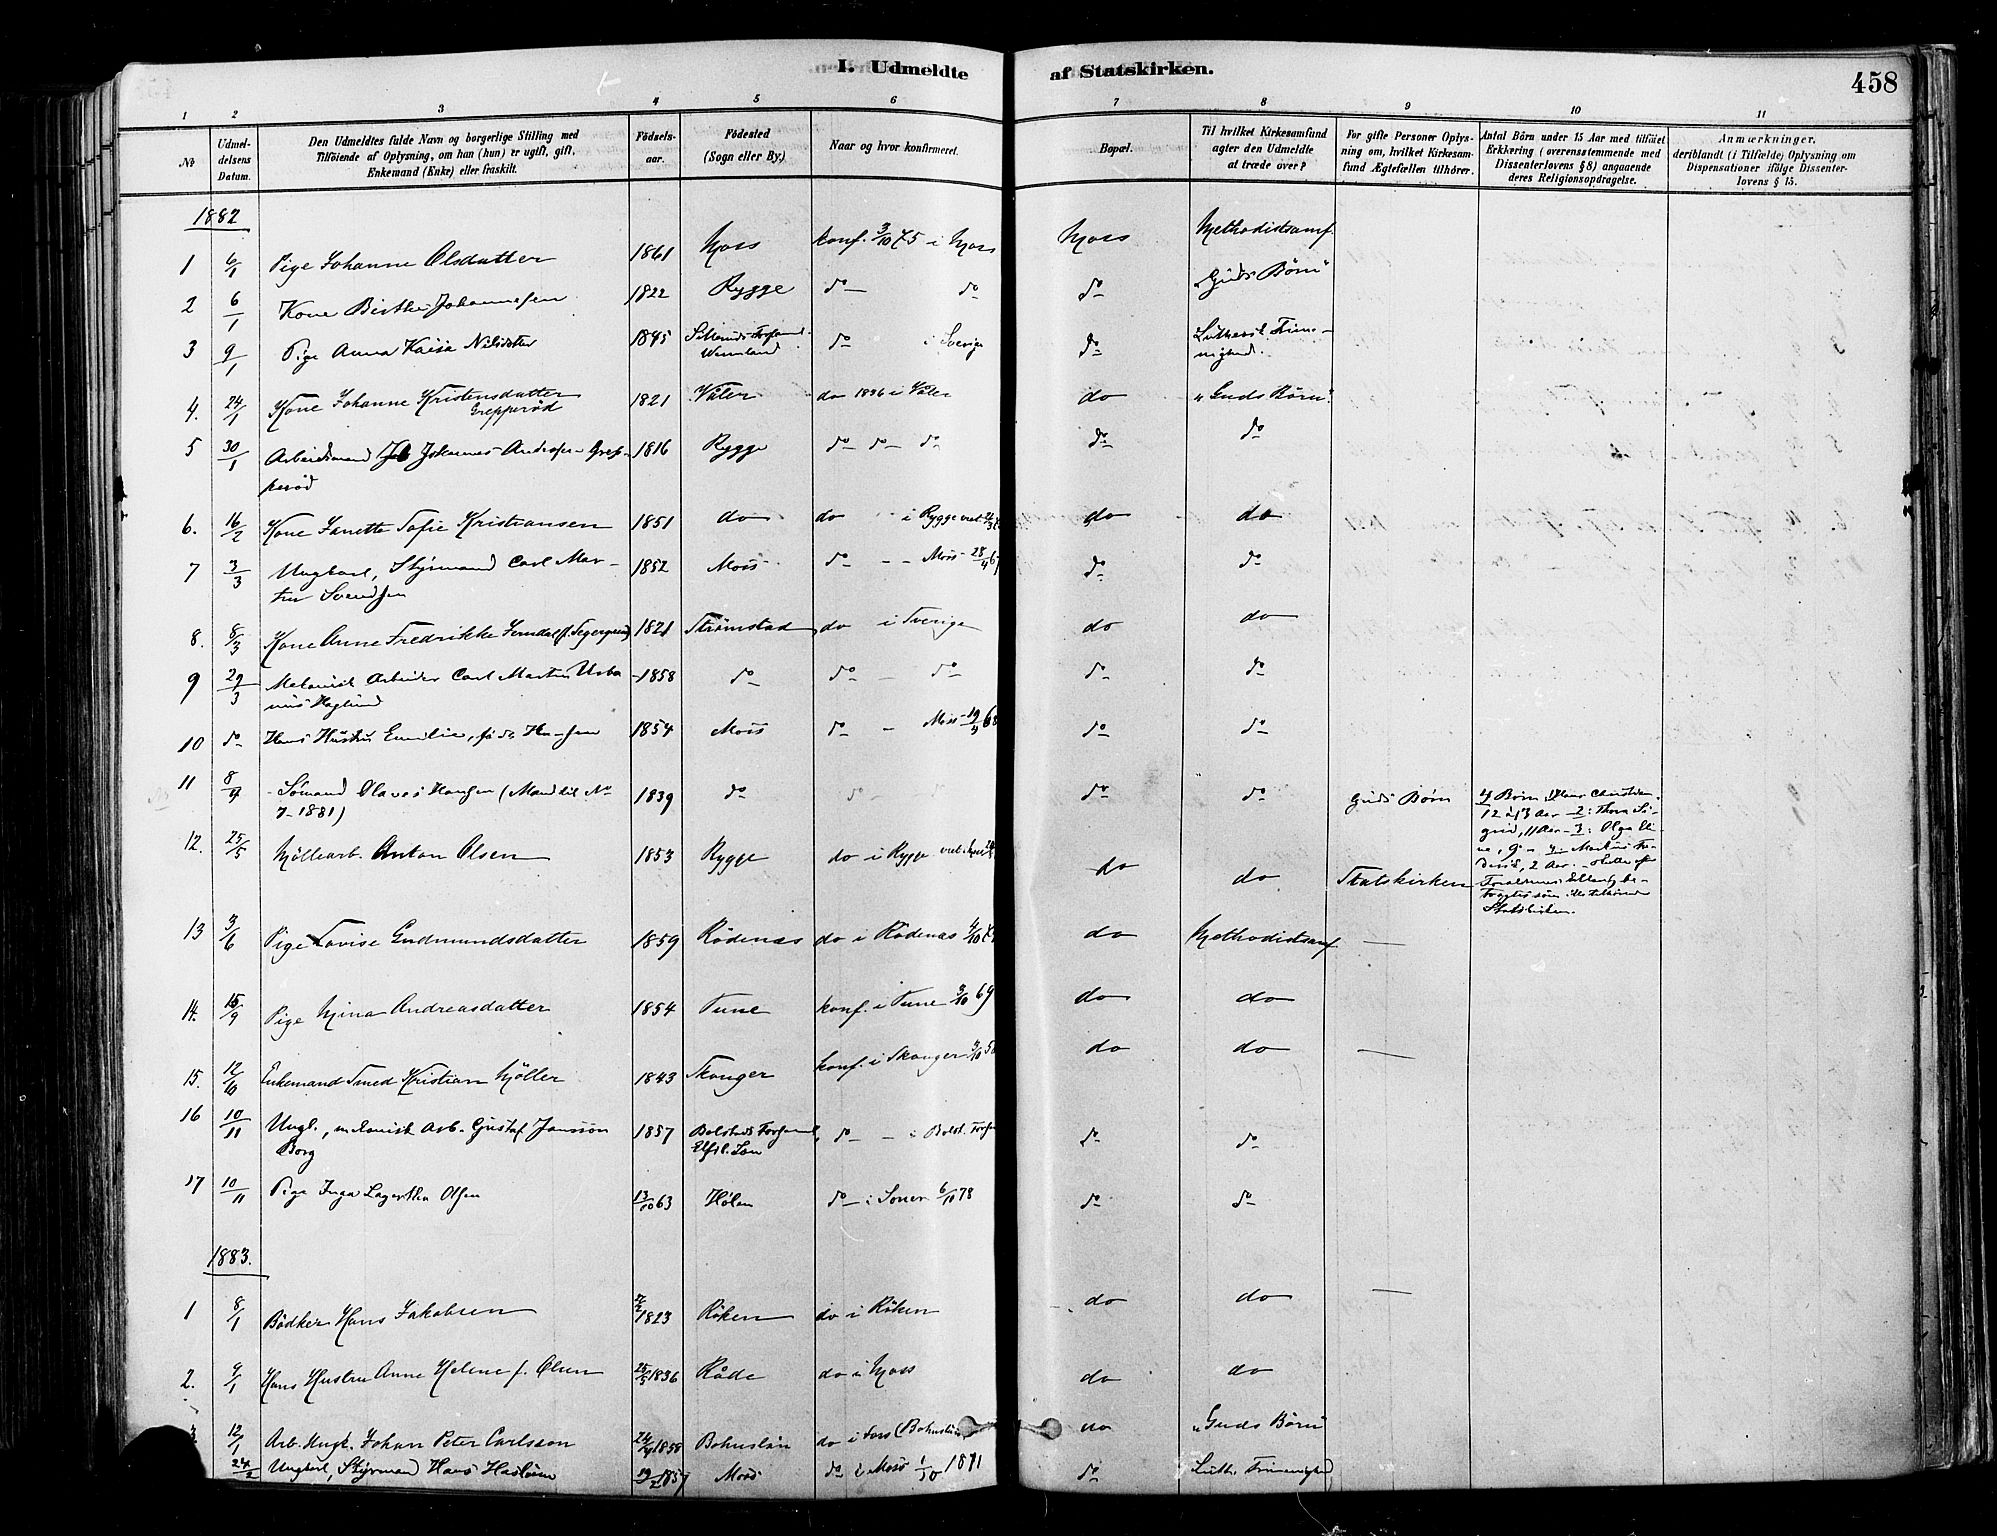 I. Udmeldte af Statskirken.
458
1 2 3 4 5 6 7 8 9 10 11
No
Udmeldelsens Datum.
Den Udmeldtes fulde Navn og borgerlige Stilling med Tilföiende af Oplysning, om han (hun) er ugift, gift, Enkemand (Enke) eller fraskilt.
Födselsaar.
Födested (Sogn eller By.)
Naar og hvor konfirmeret.
Bopæl.
Til hvilket Kirkesamfund agter den Udmeldte at træde over?
For gifte Personer Oplysning om, hvilket Kirkesamfund Ægtefællen tilhörer.
Antal Börn under 15 Aar med tilföiet Erklæring (overensstemmende med Dissenterlovens § 8) angaaende deres Religionsopdragelse.
Anmærkninger, deriblandt (i Tilfælde) Oplysning om Dispensationer ifölge Dissenterlovens § 15.
1882
1 6/1 Pige Johanne Olsdatter 1861 Moss konf. 3/10 75 i Moss Moss Methodistsamf.
2 6/1 Kone Birthe Johannesen 1822 Rygge do do do "Guds Børn"
3 9/1 Pige Anna Kaisa Nilsdotter 1845 Wermland do i Sverige do Luthersk Frimenighed.
4. 24/1 Kone Johanne Kristensdatter Grepperød 1821 Våler do 1836 i Våler do "Guds Børn".
5 30/1 Arbeidsmand Johannes Andersen Grepperød 1816 Rygge do do do do do
6. 16/2 Kone Janette Sofie Kristiansen 1851 do do i Rygge do do
7 3/3 Ungkarl, Styrmand Carl Martin Svendsen 1852 Moss do Moss 28/4 67 do do
8. 8/3 Kone Anne Fredrikke 1821 Strømstad do i Sverige do do
9 29/3 Mekanisk Arbeider Carl Martin Urbanus Høglund 1858 do do do do do
10 do Hans Hustru Emilie, født Hansen 1854 Moss do Moss 68 do do
11 8/4 Sømand Olaves Hansen (Mand til No 7-1881) 1839 do do do do do Guds Børn 4 Børn
12 à 13 Aar 2: Thora Sigrid, 11 Aar 3: Olga 9 4: Markus Fredrik, 2 Aar. Statskirken.
12. 25/5 Møllearb. Anton Olsen 1853 Rygge do i Rygge do do Statskirken
13 3/6 Pige Lovise Gudmundsdatter 1859 Rödenæs do i Rödenæs do Methodistsamf —
14. 15/9 Pige Mina Andreasdatter 1854 Tune konf. i Tune 3/10 69 do do
15. 12/10 Enkemand Smed Kristian Møller 1843 Skanger konf. i Skanger do do —
16 10/11 Ungk., mekanisk Arb. Gustaf Jansson Borg 1857 Bolstads Forsaml. do i Bolst. Fors do do
17 10/11 Pige Inga Lagertha Olsen 13/10 63 Hølen do i Soner 6/10 78 do do
1883.
1 8/1 Bødker Hans Jakobsen 1823 Röken do i Röken do do —
2. 9/1 Hans Hustru Anne Helene f. Olsen 25/5 1836 Råde do i Moss do do
12/1 Arb. Ungk. Johan Peter Carlsson 1858 Bohuslän do i (Bohuslän) do "Guds Børn"
24/2 Ungkarl, Styrmand Hans 1857 Moss do i Moss 1/10 1871 do Luth. Frimenighed